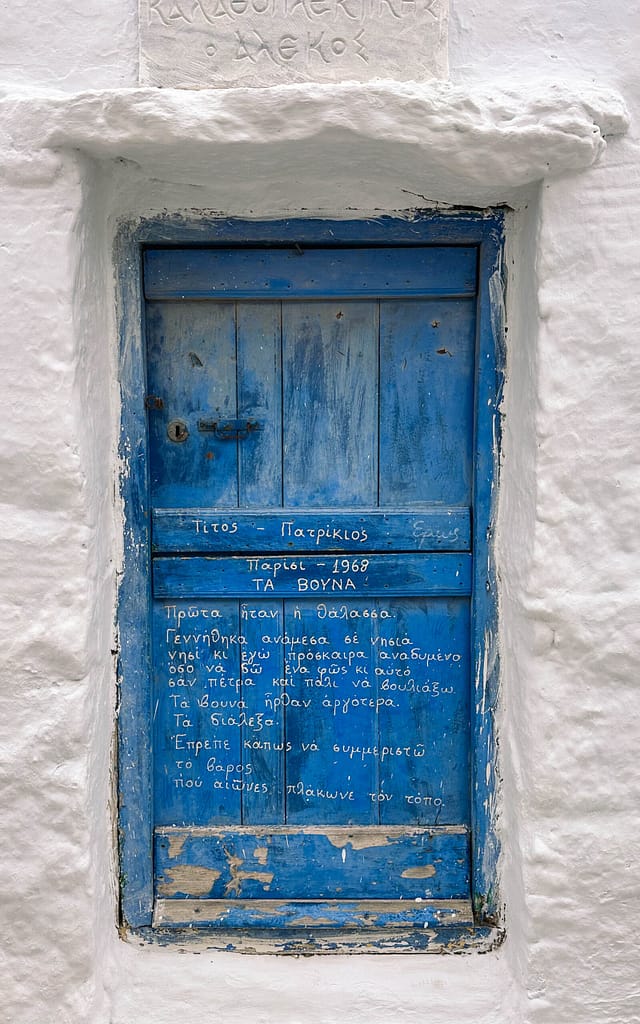 ΚΑΛΑΘΟΠΛΕΚΤΙΚΗΣ
Ο ΑΛΕΚΟΣ
Τίτος - Πατρίκιος
Παρίσι - 1968
ΤΑ ΒΟΥΝΑ
Πρῶτα ἦταν ἡ θάλασσα.
Γεννήθηκα ἀνάμεσα σέ νησιά
νησί κι ἐγώ πρόσκαιρα ἀναδυμένο
ὅσο νά δῶ ἕνα φῶς κι αὐτό
σάν πέτρα καί πάλι νά βουλιάξω.
Τά βουνά ἦρθαν ἀργότερα.
Τά διάλεξα.
Ἔπρεπε κάπως νά συμμεριστῶ
τό βάρος
πού αἰῶνες πλάκωνε τόν τόπο.